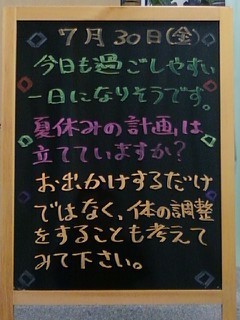 7月30日(金)
今日も過ごしやすい
一日になりそうです。
夏休みの計画は
立てていますか?
お出かけするだけ
ではなく、体の調整
をすることも考えて
みて下さい。